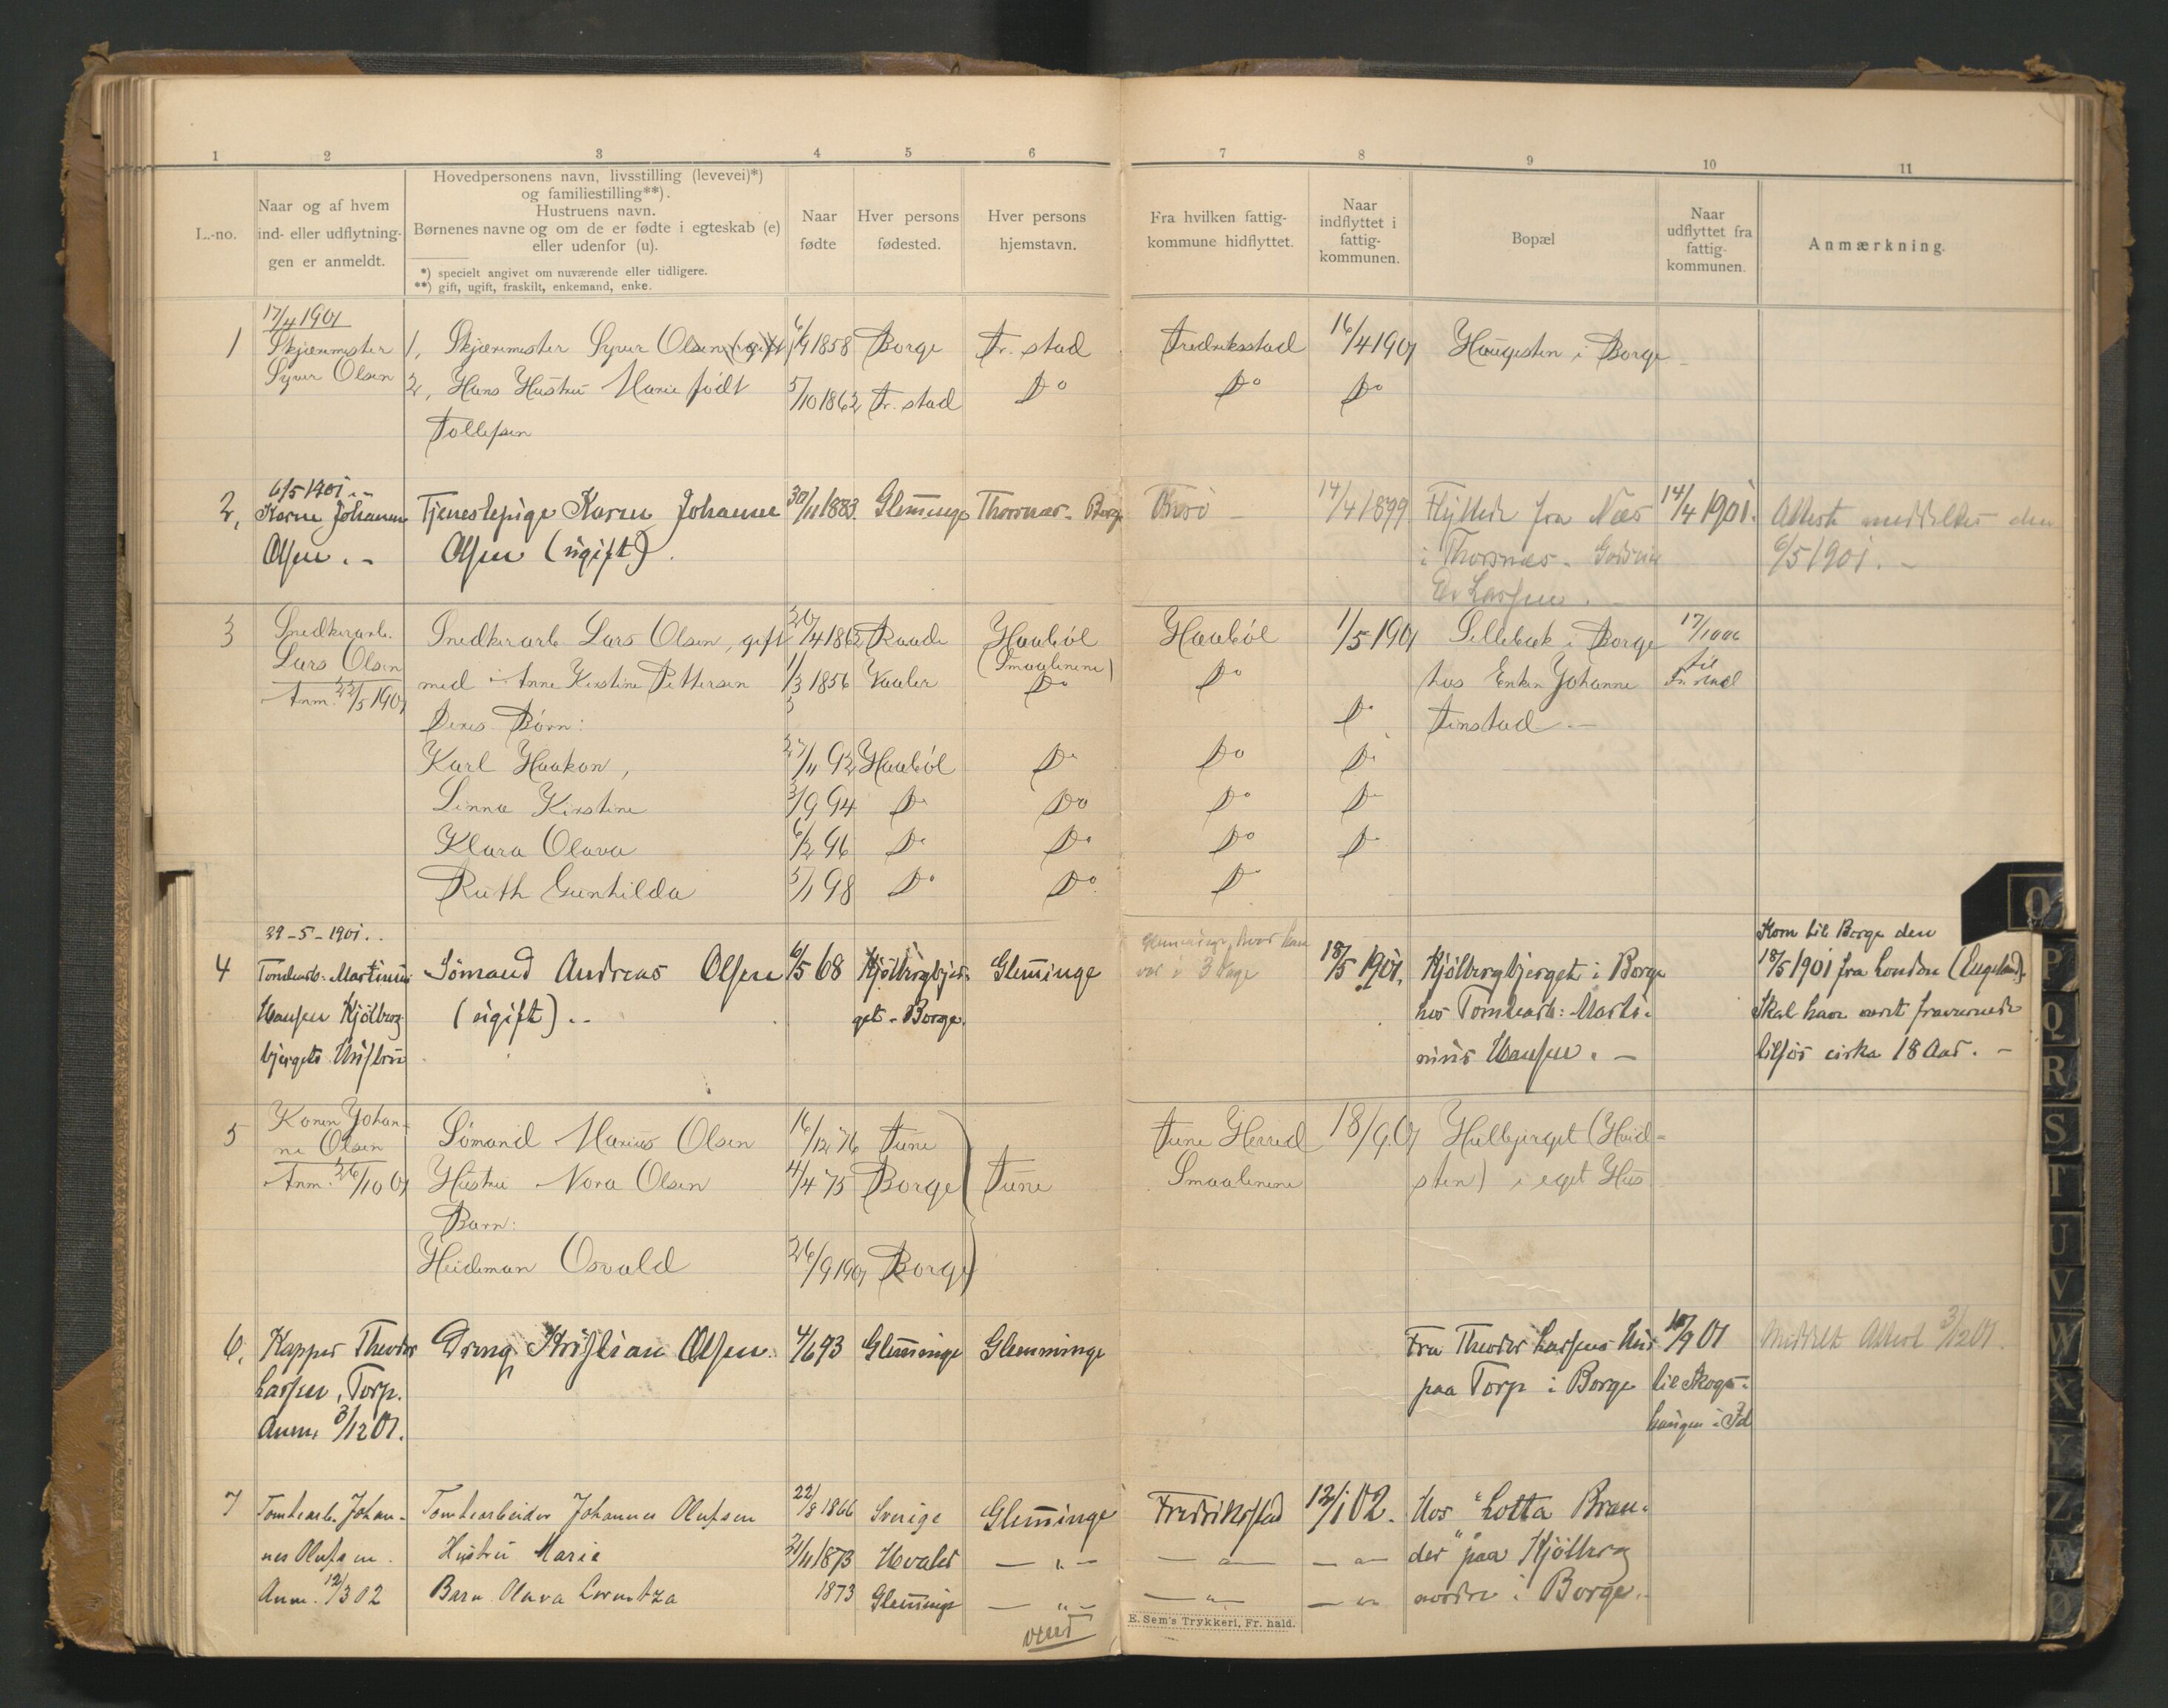 1 2 3 4 5 6 7 8 9 10 11
L.-no.
Naar og af hvem
ind- eller udflytnin-
gen er anmeldt.
Hovedpersonens navn, livsstilling (levevei)*)
og familiestilling**).
Hustruens navn.
Børnenes navne og om de er fødte i egteskab (e)
eller udenfor (u).
*) specielt angivet om nuværende eller tidligere.
**) gift, ugift, fraskilt, enkemand, enke.
Naar
fødte
Hver persons
fødested.
Hver persons
hjemstavn.
Fra hvilken fattig-
kommune hidflyttet.
Naar
indflyttet i
fattig-
kommunen.
Bopæl
Naar
udflyttet fra
fattig-
kommunen.
Anmærkning.
1
17/4 1901
Skjærmester
Syver Olsen
1, Skjærmester Syver Olsen (gift) 6/9 1858 Borge Fr. stad Fredriksstad 16/4 1901 Haugesten i Borge
2, Hans Hustru Marie født 5/10 1862 Fr. stad Do Do Do
Tollefsen
2,
6/5 1901
Karen Johanne
Olsen
Tjenestepige Karen Johanne 30/11 1883. Glemminge Thorsnæs - Borge Onsö 14/4 1899 Flyttede fra Næs 14/4 1901. Attest meddeltes den
Olsen (ugift). i Thorsnæs. 6/5 1901.
Larsen.
3
Snedkerarb.
Lars Olsen
Anm. 22/5 1901
Snedkerarb. Lars Olsen, gift 20/4 1862 Raade Haabøl Haabøl 1/5 1901 Sellebæk i Borge
(Smaalenene)
med Anne Kirstine Pettersen 1/3 1856 Vaaler Do Do hos Enken Johanne
til
Fr. stad
Deres Børn: Do
Karl Haakon, 27/11 92 Haabøl Do Do Do
Linna Kirstine 3/9 94 Do Do Do Do
Klara Olava 6/2 96 Do Do Do Do
Ruth Gunhilda 5/1 98 Do Do Do
4
29-5-1901.
Tomtearb. Martinius
Hansen Kjölberg
bjergets
Sömand Andreas Olsen 6/5 68 Kjölbergbjer- Glemminge
(ugift) get - Borge.
Glemminge, hvor han
var i 3 Dage
18/5 1901. Kjölbergbjerget i Borge
hos Tomtearb: Marti-
nius Hansen.
Kom til Borge den
18/5 1901 fra London (England).
Skal have været fraværende
tilsjøs cirka 18 Aar.
5
Konen Johan-
ne Olsen
Anm. 26/10 01
Sømand Marius Olsen 16/12 76 Tune
Hustru Nora Olsen 4/4 75 Borge Tune
Barn:
Heideman Osvald 26/9 1901 Borge
Tune Herred 18/9.01 Hulbjerget (Hvid-
Smaalenene sten) i eget Hus
6.
Kapper Theodor
Larsen, Torp.
Anm. 3/12 01.
Dreng Kristian Olsen. 4/6 93 Glemminge Glemminge
Fra Theodor Larsens Hus
paa Torp i Borge
til Skogs-
haugen i Id
Meddelt Attest 3/12 01.
7
Tomtearb. Johan-
nes Olufsen.
Anm. 12/3 02
Tomtearbeider Johannes Olufsen 22/8 1866 Sverige Glemminge Fredriksstad 12/1 02. Hos "Lotta Bran-
Hustru Marie 21/11 1873 Hvaler — " — — " — — " — der" paa Kjölberg
Barn Olava 1873 Glemminge — " — — " — — " — nordre i Borge.
vend
E. Sem's Trykkeri, Fr. hald.
O
P
Q
R
S
T
U
V
W
X
Y
Z
Æ
Ø